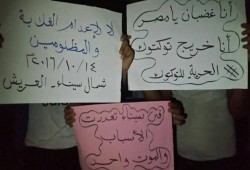 أنا غضبان يا مصر
أنا خريج توكتوك
# الحرية للتوكتوك
لا لإعدام الغلابة
والمظلومين
٢٠١٦/١٠/١٤
شمال سيناء. العريش
في سيناء تعددت
الأسباب
والموت واحد